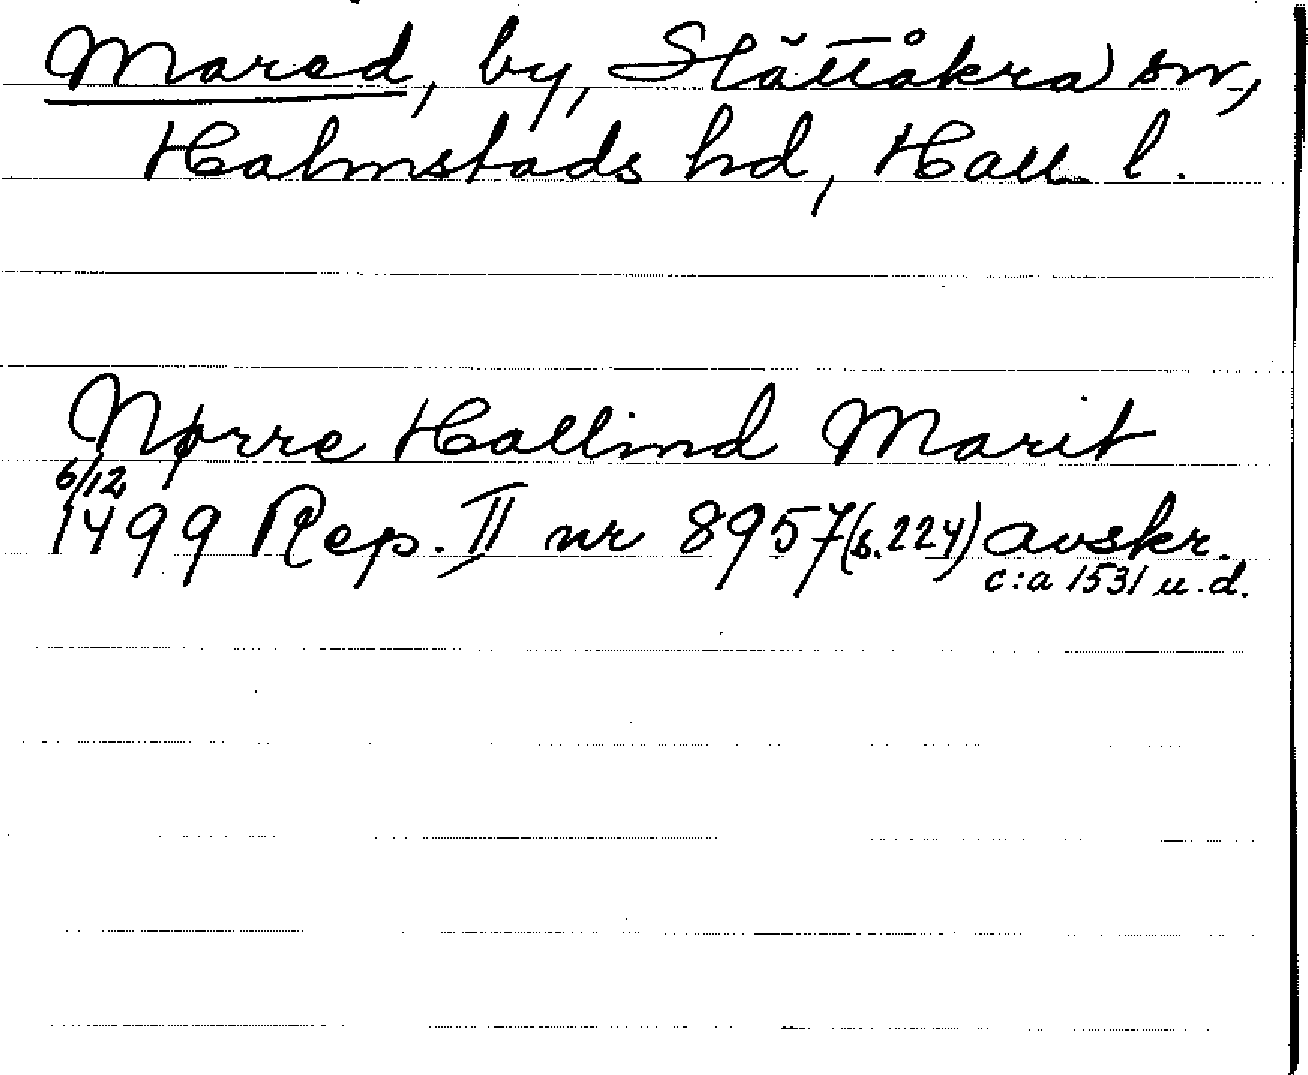 Mared, by, Slättåkra sn,
Halmstads hd, Hall. l.
Nørre Hallind Marit
6/12
1499 Rep. II nr 8957 (s. 224) avskr.
c:a 1531 u.d.